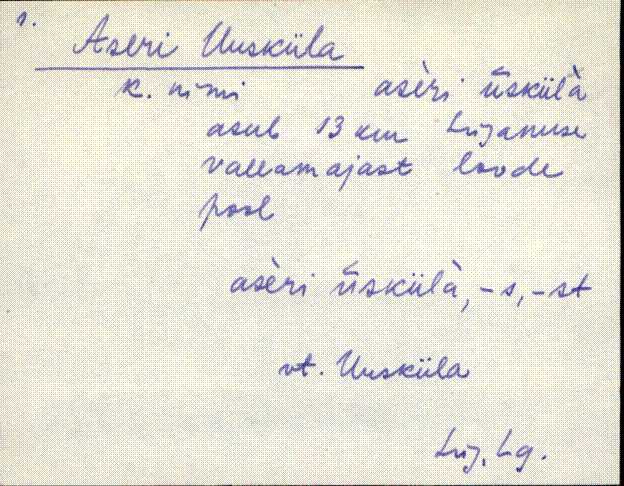 s.
Aseri Uusküla
k. nimi asèri ūskülà
asub 13 km Lüganuse
vallamajast loode
pool
asèri ūskülà, -s, -st
vt. Uusküla
Lüg. Lg.